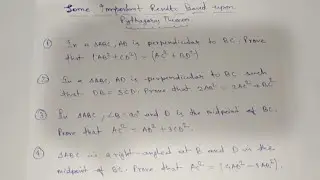 Some Important Results Based upon
Pythagoras Theorem
① In a ΔABC, AD is perpendicular to BC. Prove
that (AB² + CD²) = (AC² + BD²)
② In a ΔABC, AD is perpendicular to BC such
that DB = 3CD. Prove that 2AB² = 2AC² + BC²
③ In ΔABC, ∠B = 90° and D is the midpoint of BC.
Prove that AC² = AB² + 3CD².
④ ΔABC is a right-angled at B and D is the
midpoint of BC. Prove that AC² = (4AD² - 3AB²).